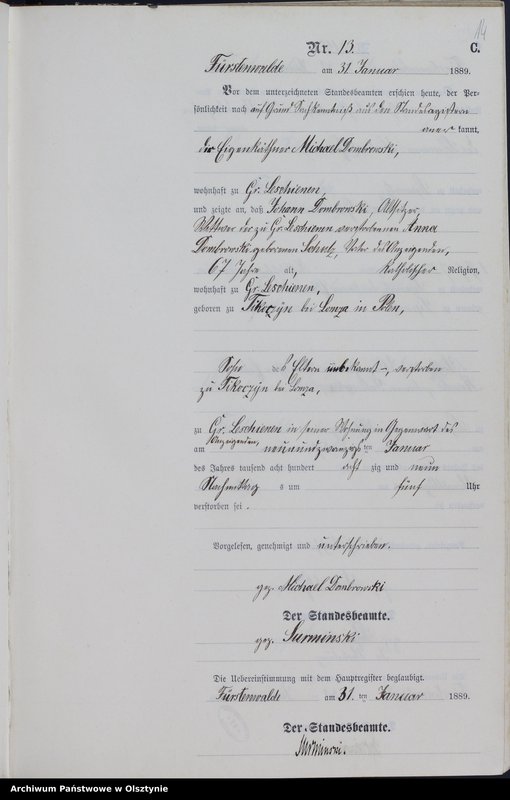 14
Nr. 13. C.
Fürstenwalde am 31. Januar 1889.
Vor dem unterzeichneten Standesbeamten erschien heute, der Per-
sönlichkeit nach auf Grund aus den Standesregistern
kannt,
der Eigenkäthner Michael Dombrowski,
wohnhaft zu Gr. Leschienen,
und zeigte an, daß Johann Dombrowski, Altsitzer,
Wittwer der zu Gr. Leschienen verstorbenen Anna
Dombrowski geborenen Schulz, Vater des Anzeigenden,
67 Jahre alt, katholischer Religion,
wohnhaft zu Gr. Leschienen,
geboren zu Tikoczyn bei Lomza in Polen,
Sohn der Eltern unbekannt, verstorben
zu Tikoczyn bei Lomza,
zu Gr. Leschienen in seiner Wohnung in Gegenwart des
Anzeigenden,
am neunundzwanzigsten Januar
des Jahres tausend acht hundert acht zig und neun
Nachmittags um fünf Uhr
verstorben sei.
Vorgelesen, genehmigt und unterschrieben.
gez. Michael Dombrowski
Der Standesbeamte.
gez. Surminski
Die Uebereinstimmung mit dem Hauptregister beglaubigt.
Fürstenwalde am 31. ten Januar 1889.
Der Standesbeamte.
Surminski.
Archiwum Państwowe w Olsztynie